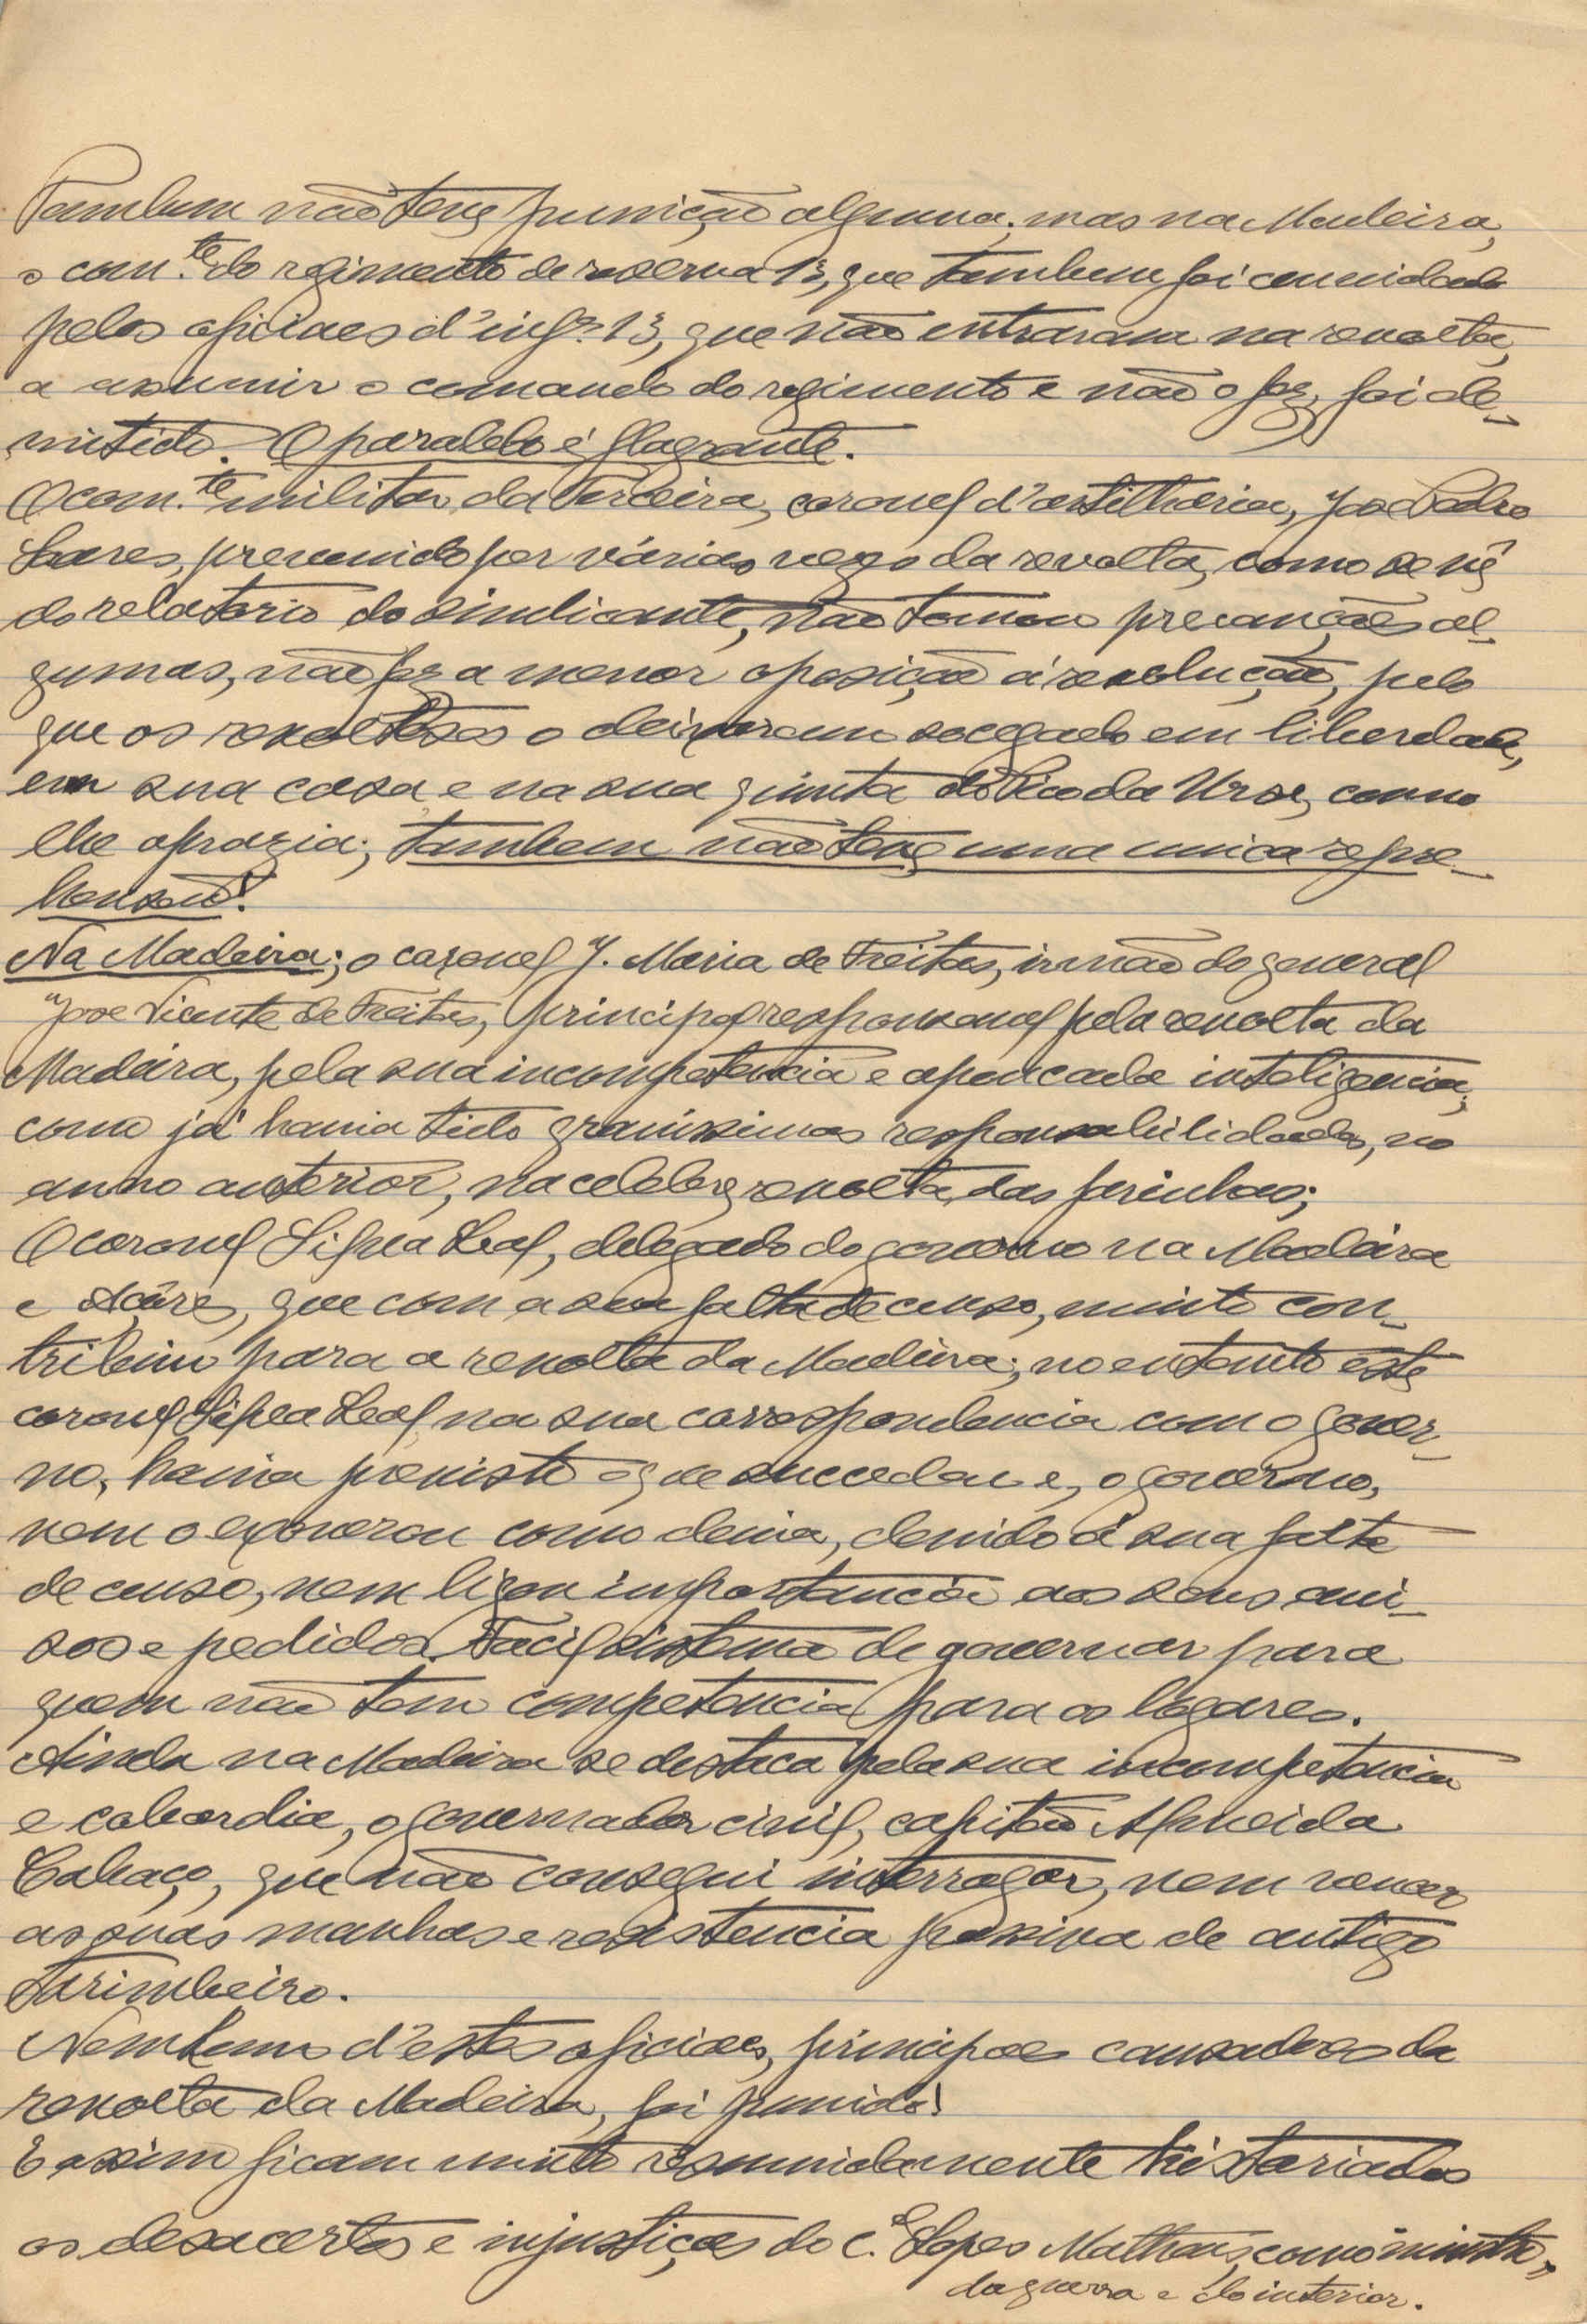 Tambem não teve punição alguma; mas na Madeira,
o com.te do regimento de reserva 13, que tambem foi convidado
pelos oficiaes d'inf.ª 13, que não entraram na revolta,
a assumir o comando do regimento e não o fez, foi de-
mitido. O paralelo é flagrante.
O com.te militar da Terceira, coronel d'artilharia, José Pedro
Soares, prevenido por várias vezes da revolta, como se vê
do relatorio do sindicante, não tomou precauções al-
gumas, não fez a menor oposição á revolução, pelo
que os revoltosos o deixaram socegado em liberdade,
em sua casa e na sua quinta do Pico da Urze, como
lhe aprazia; tambem não teve uma unica repre-
hensão!
Na Madeira; o coronel J. Maria de Freitas, irmão do general
José Vicente de Freitas, principal responsavel pela revolta da
Madeira, pela sua incompetencia e apoucada inteligencia,
como já havia tido gravissimas responsabilidades, no
anno anterior, na celebre revolta das farinhas;
O coronel Silva Leal, delegado do governo na Madeira
e Açôres, que com a sua falta de censo, muito con-
tribuiu para a revolta da Madeira; no entanto este
coronel Silva Leal na sua correspondencia com o gover-
no, havia previsto o que succedeu e, o governo,
nem o exonerou como devia, devido á sua falta
de censo, nem ligou importancia aos seus avi-
sos e pedidos. Facil sistema de governar para
quem não tem competencia para os logares.
Ainda na Madeira se destaca pela sua incompetencia
e cobardia, o governador civil, capitão Almeida
Cabaço, que não consegui interrogar, nem vencer
as suas manhas e resistencia passiva de antigo
tarimbeiro.
Nenhum d'estes oficiaes, principaes causadores da
revolta da Madeira, foi punido!
E assim ficam muito resumidamente historiados
os desacertos e injustiças do c.el Lopes Matheus, como ministro,
da guerra e do interior.